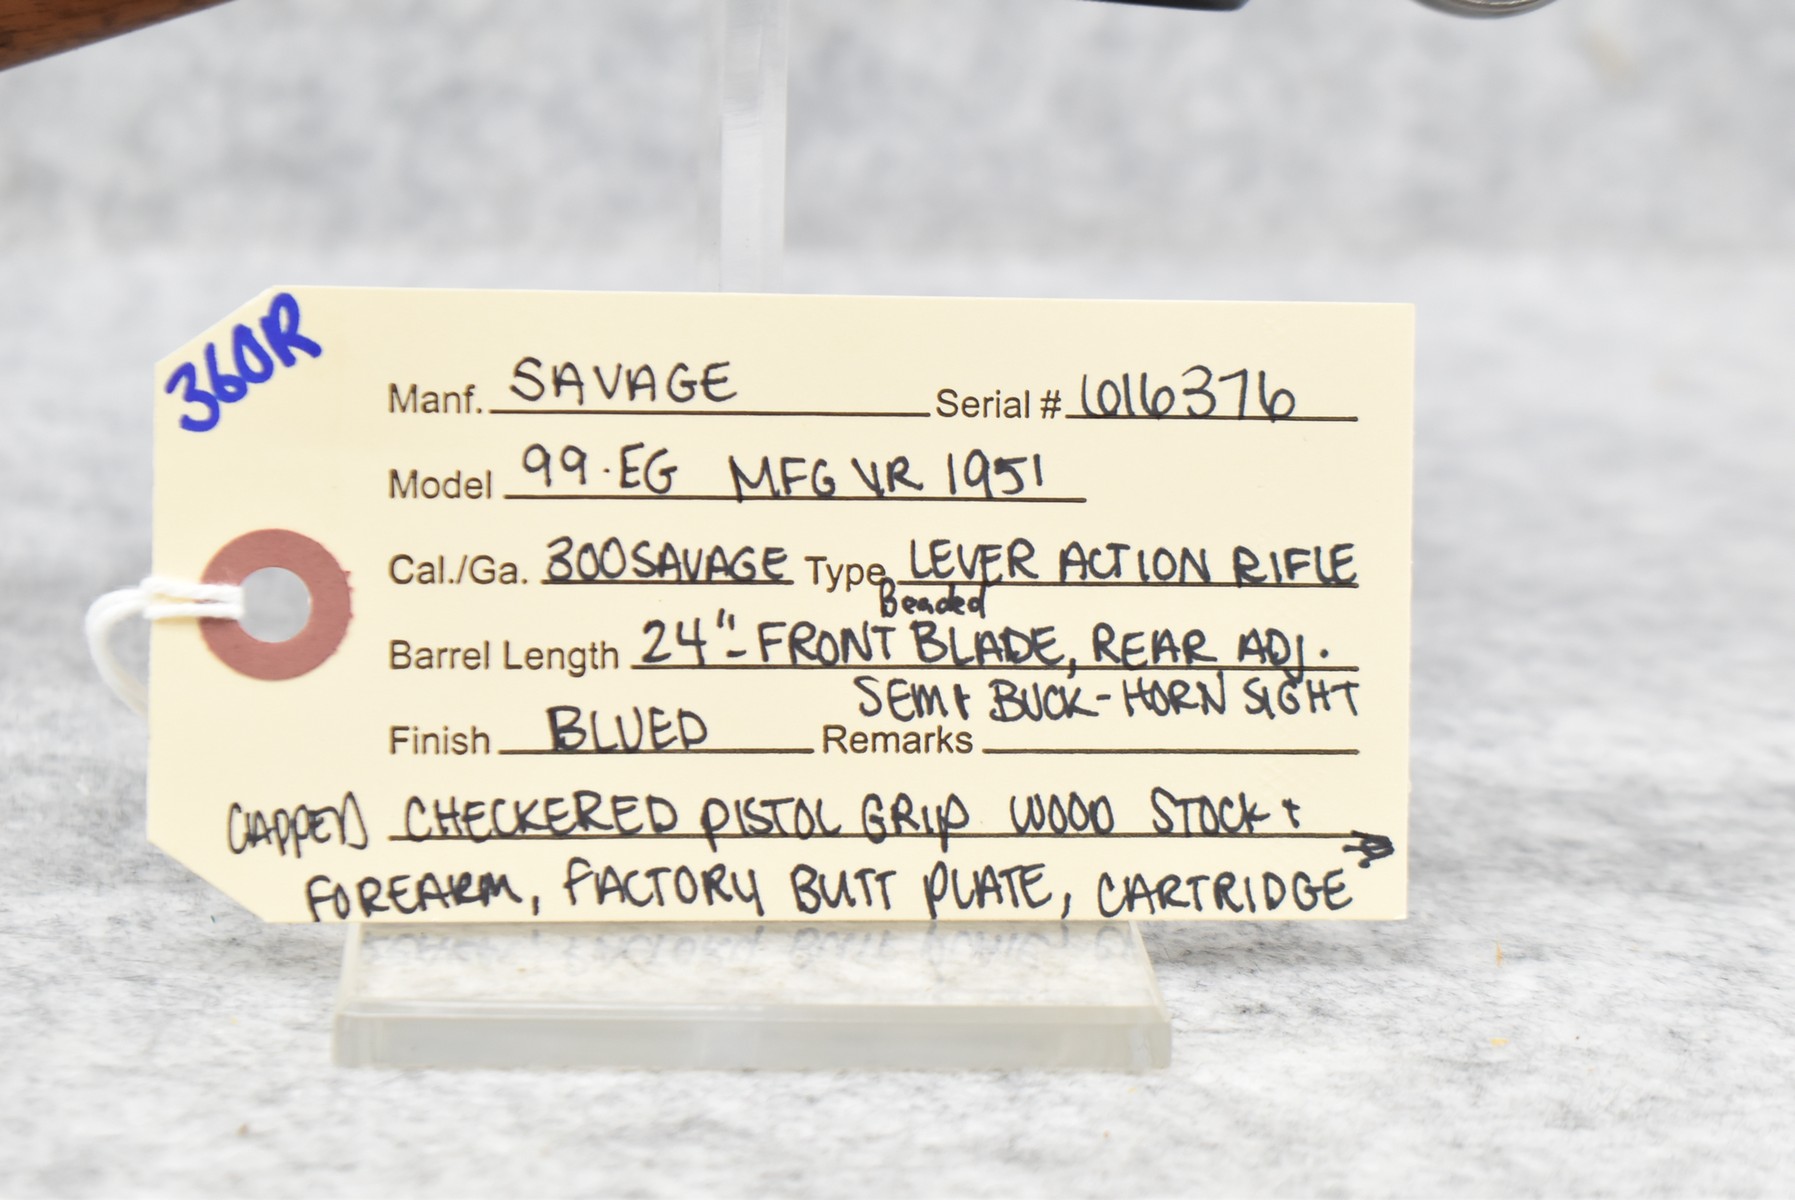 360R
Manf. SAVAGE Serial # 616376
Model 99·EG MFG YR 1951
Cal./Ga. 300 SAVAGE Type LEVER ACTION RIFLE
Beaded
Barrel Length 24" - FRONT BLADE, REAR ADJ.
SEMI BUCK-HORN SIGHT
Finish BLUED Remarks
CAPPED CHECKERED PISTOL GRIP WOOD STOCK +
FOREARM, FACTORY BUTT PLATE, CARTRIDGE →